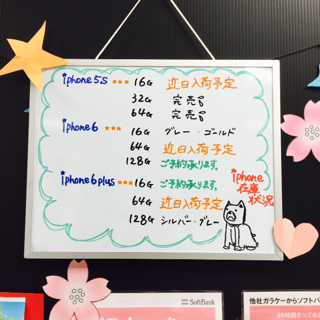 iphone5s ★★★ 16G 近日入荷予定
32G 完売
64G 完売
iphone6 ★★★ 16G グレー・ゴールド
64G 近日入荷予定
128G ご予約承ります。
iphone6plus ★★★ 16G ご予約承ります。
64G 近日入荷予定
128G シルバー・グレー
iphone
在庫
状況
SoftBank
他社ガラケーからソフトバ